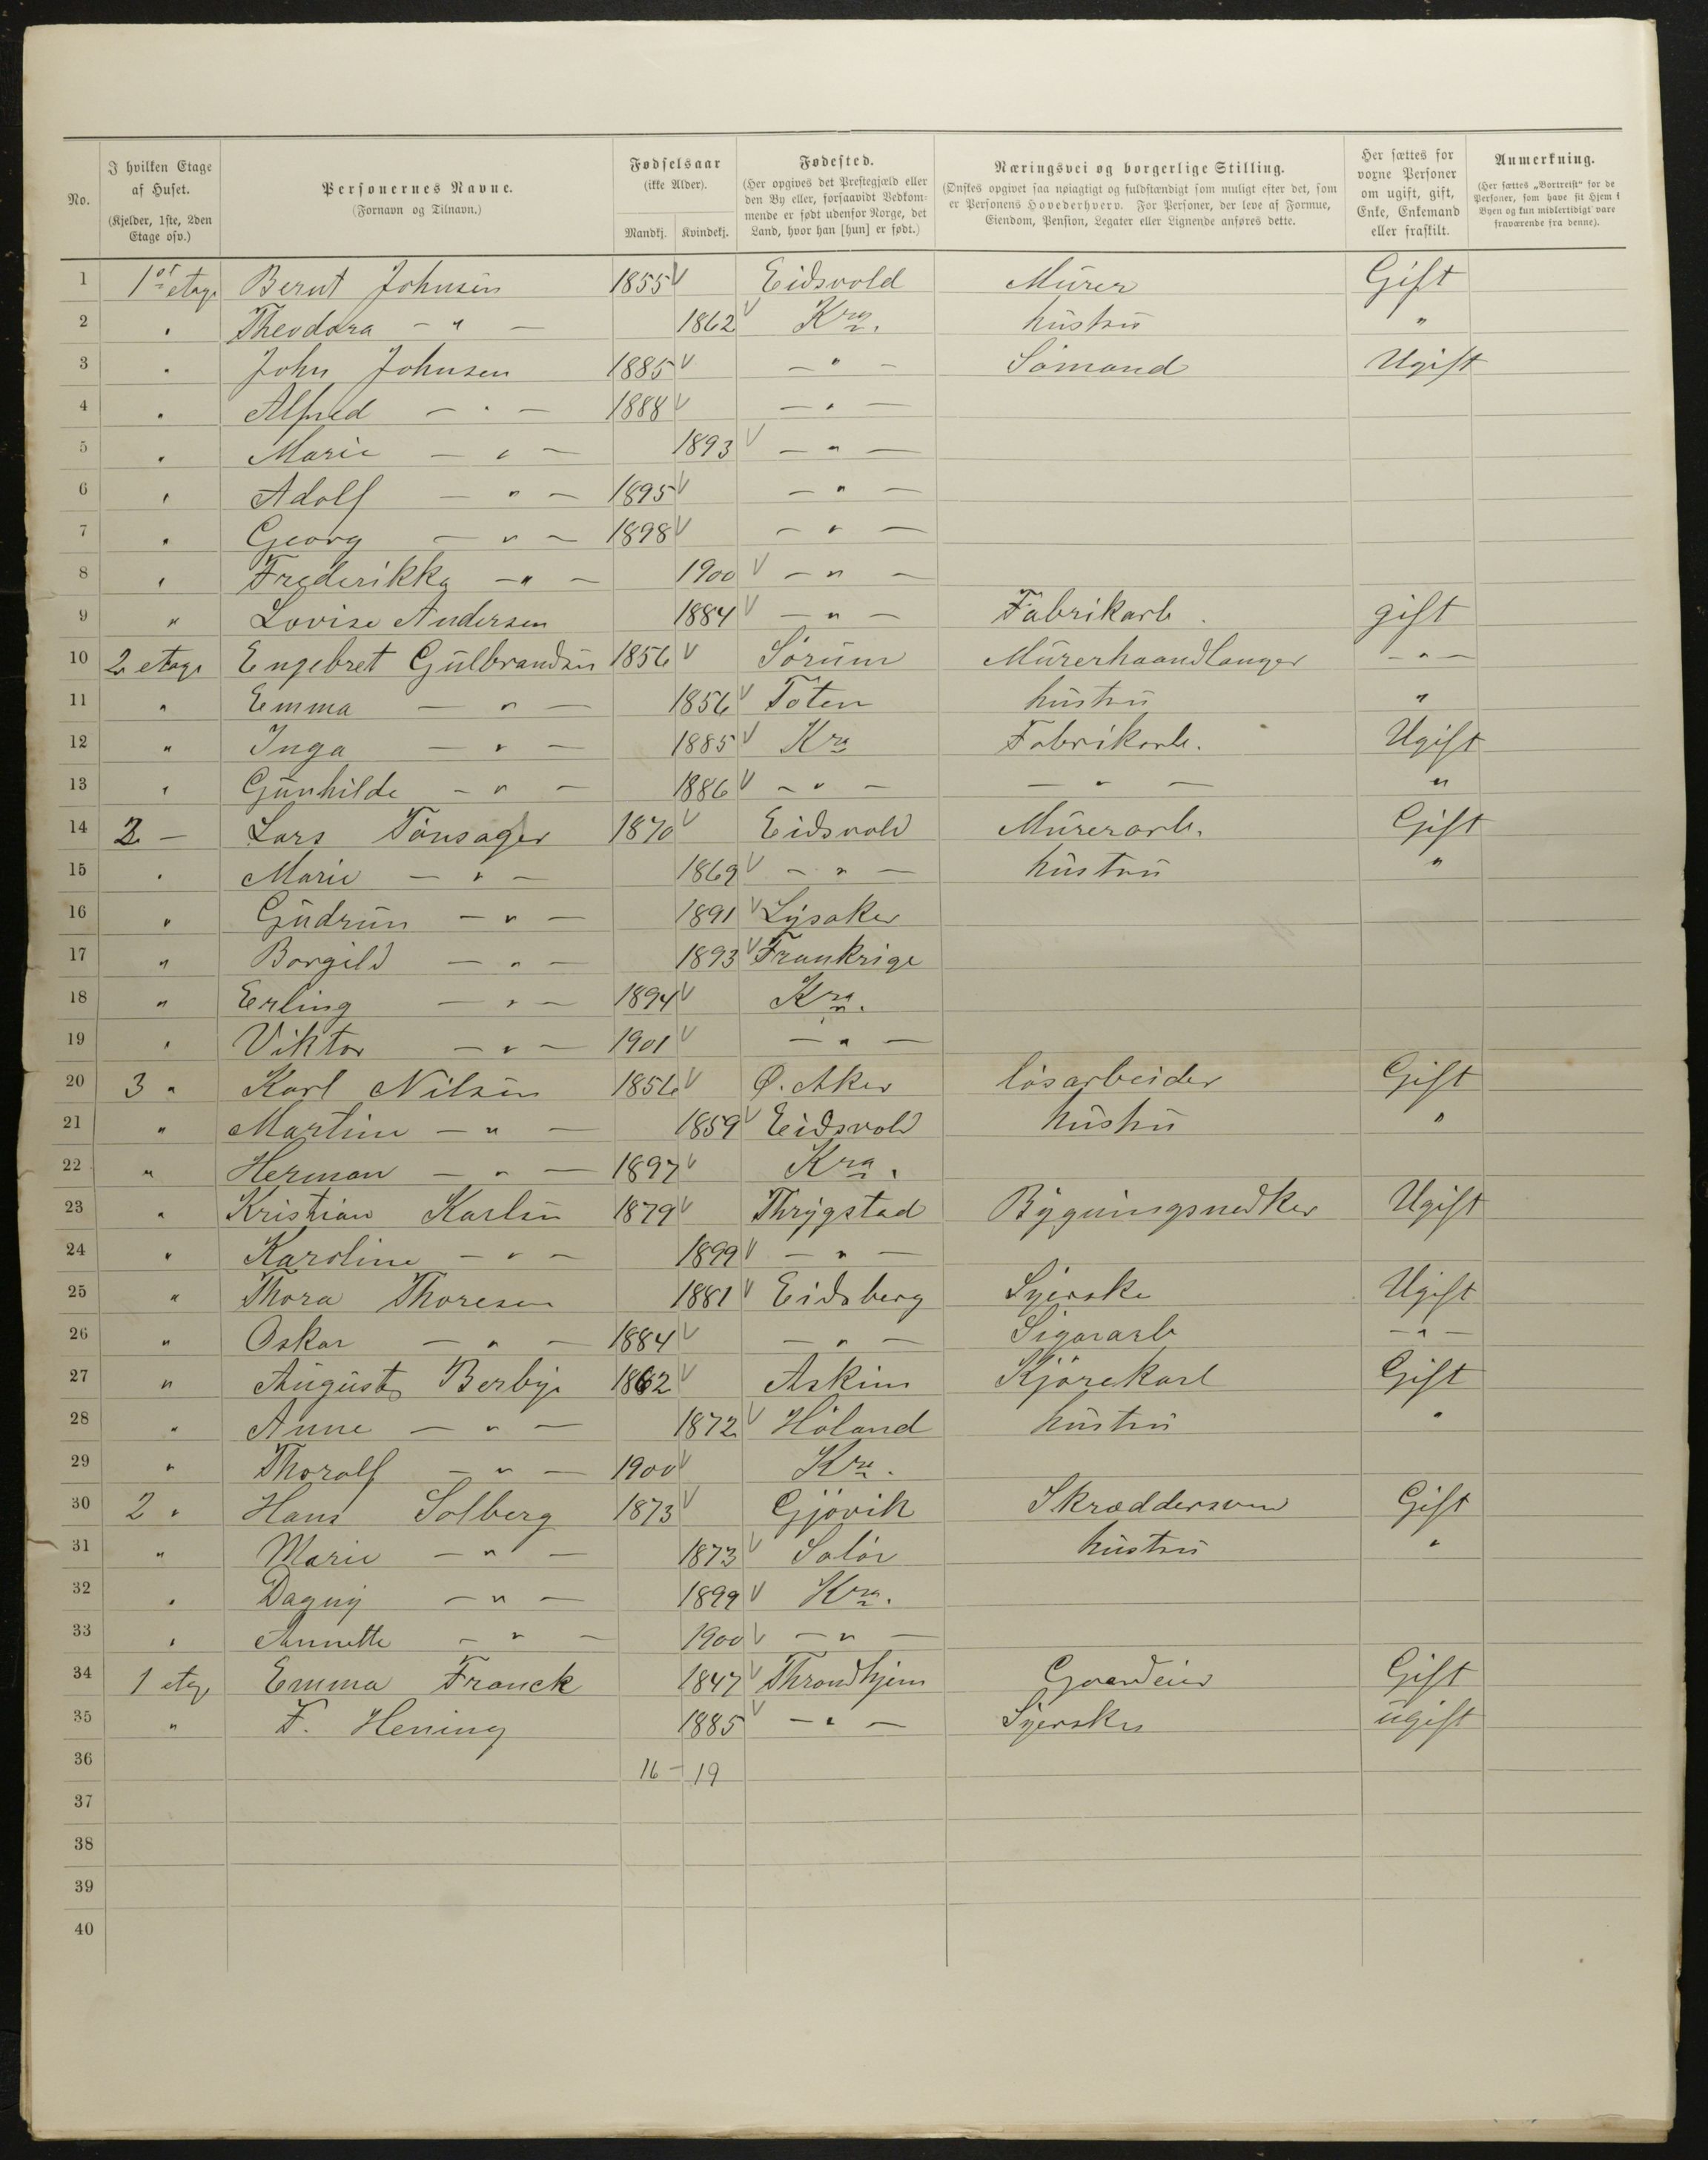 No. | I hvilken Etage af Huset. (Kjelder, 1ste, 2den Etage osv.) | Personernes Navne. (Fornavn og Tilnavn.) | Fødselsaar (ikke Alder). Mandkj. | Kvindekj. | Fødested. (Her opgives det Prestegjæld eller den By eller, forsaavidt Vedkommende er født udenfor Norge, det Land, hvor han [hun] er født.) | Næringsvei og borgerlige Stilling. (Ønskes opgivet saa nøiagtigt og fuldstændigt som muligt efter det, som er Personens Hovederhverv. For Personer, der leve af Formue, Eiendom, Pension, Legater eller Lignende anføres dette.) | Her sættes for voxne Personer om ugift, gift, Enke, Enkemand eller fraskilt. | Anmerkning. (Her sættes „Bortreist“ for de Personer, som have sit Hjem i Byen og kun midlertidigt vare fraværende fra denne).
1 1st etage Bernt Johnsen 1855 V Eidsvold Mürer Gift
2 " Theodora — " — 1862 V Kra. hüstrü "
3 " John Johnsen 1885 V — " — Sömand Ugift
4 " Alfred — " — 1888 V — " —
5 " Marie — " — 1893 V — " —
6 " Adolf — " — 1895 V — " —
7 " Georg — " — 1898 V — " —
8 " Frederikke — " — 1900 V — " —
9 " Lovise Andersen 1884 V — " — Fabrikarb. gift
10 2 etage Engebret Gülbrandsen 1856 V Sörüm Mürerhaandlanger — " —
11 " Emma — " — 1856 V Toten hüstrü "
12 " Inga — " — 1885 V Kra Fabrikarb. Ugift
13 " Günhilde — " — 1886 V — " — — " — "
14 2 — Lars Tönsager 1870 V Eidsvold Mürerarb. Gift
15 " Marie — " — 1869 V — " — hüstrü "
16 " Güdrün — " — 1891 V Lysaker
17 " Borgild — " — 1893 V Frankrige
18 " Erling — " — 1894 V Kra.
19 " Viktor — " — 1901 V — " —
20 3 " Karl Nilsen 1856 V Ø. Aker lösarbeider Gift
21 " Martine — " — 1859 V Eidsvold hüstrü "
22 " Herman — " — 1897 V Kra.
23 " Kristian Karlsen 1879 V Thrygstad Bygningsnedker Ugift
24 " Karoline — " — 1899 V — " —
25 " Thora Thoresen 1881 V Eidsberg Syerske Ugift
26 " Oskar — " — 1884 V — " — Sigararb — " —
27 " August Berbye 1862 V Askim Kjörekarl Gift
28 " Anne — " — 1872 V Höland hüstrü "
29 " Thoralf — " — 1900 V Kra.
30 2 " Hans Solberg 1873 V Gjövik Skræddersvend Gift
31 " Marie — " — 1873 V Solör hüstrü "
32 " Dagny — " — 1899 V Kra.
33 " Annette — " — 1900 V — " —
34 1 etage Emma Franck 1847 V Throndhjem Gaardeier Gift
35 " F. Hening 1885 V — " — Syerske ugift
36 16 — 19
37
38
39
40